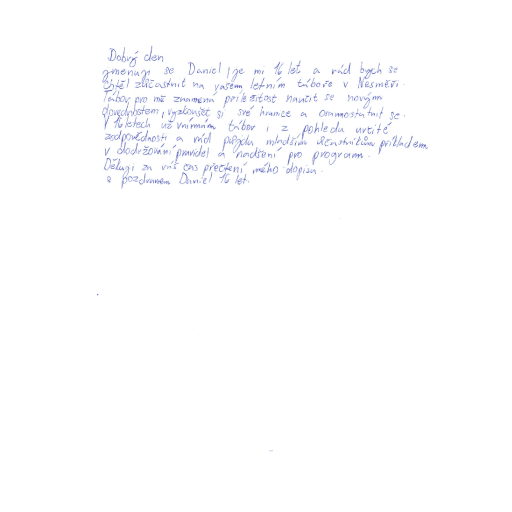 Dobrý den
jmenuji se Daniel, je mi 16 let a rád bych se
chtěl zúčastnit na vašem letním táboře v Nesměři.
Tábor pro mě znamená příležitost naučit se novým
dovednostem, vyzkoušet si své hranice a osamostatnit se.
V 16 letech už vnímám tábor i z pohledu určité
zodpovědnosti a rád půjdu mladším účastníkům příkladem
v dodržování pravidel a nadšení pro program.
Děkuji za váš čas přečtení mého dopisu.
s pozdravem Daniel 16 let.